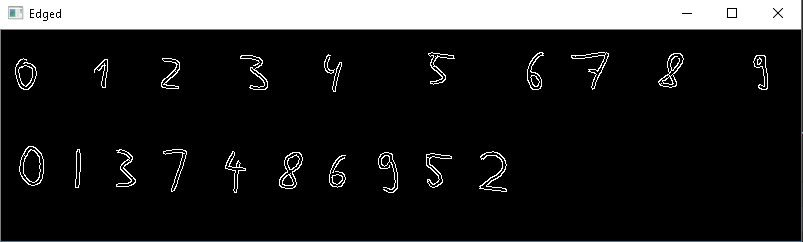 Edged
0 1 2 3 4 5 6 7 8 9
0 1 3 7 4 8 6 9 5 2